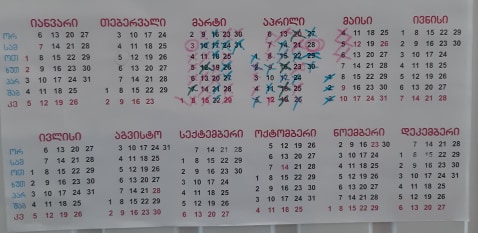 იანვარი თებერვალი მარტი აპრილი მაისი ივნისი
ორ 6 13 20 27 3 10 17 24 2 9 16 23 30 6 13 20 27 4 11 18 25 1 8 15 22 29
სამ 7 14 21 28 4 11 18 25 3 10 17 24 31 7 14 21 28 5 12 19 26 2 9 16 23 30
ოთ 1 8 15 22 29 5 12 19 26 4 11 18 25 1 8 15 22 29 6 13 20 27 3 10 17 24
ხუთ 2 9 16 23 30 6 13 20 27 5 12 19 26 2 9 16 23 30 7 14 21 28 4 11 18 25
პარ 3 10 17 24 31 7 14 21 28 6 13 20 27 3 10 17 24 1 8 15 22 29 5 12 19 26
შაბ 4 11 18 25 1 8 15 22 29 7 14 21 28 4 11 18 25 2 9 16 23 30 6 13 20 27
კვ 5 12 19 26 2 9 16 23 1 8 15 22 29 5 12 19 26 3 10 17 24 31 7 14 21 28
ივლისი აგვისტო სექტემბერი ოქტომბერი ნოემბერი დეკემბერი
ორ 6 13 20 27 3 10 17 24 31 7 14 21 28 5 12 19 26 2 9 16 23 30 7 14 21 28
სამ 7 14 21 28 4 11 18 25 1 8 15 22 29 6 13 20 27 3 10 17 24 1 8 15 22 29
ოთ 1 8 15 22 29 5 12 19 26 2 9 16 23 30 7 14 21 28 4 11 18 25 2 9 16 23 30
ხუთ 2 9 16 23 30 6 13 20 27 3 10 17 24 1 8 15 22 29 5 12 19 26 3 10 17 24 31
პარ 3 10 17 24 31 7 14 21 28 4 11 18 25 2 9 16 23 30 6 13 20 27 4 11 18 25
შაბ 4 11 18 25 1 8 15 22 29 5 12 19 26 3 10 17 24 31 7 14 21 28 5 12 19 26
კვ 5 12 19 26 2 9 16 23 30 6 13 20 27 4 11 18 25 1 8 15 22 29 6 13 20 27